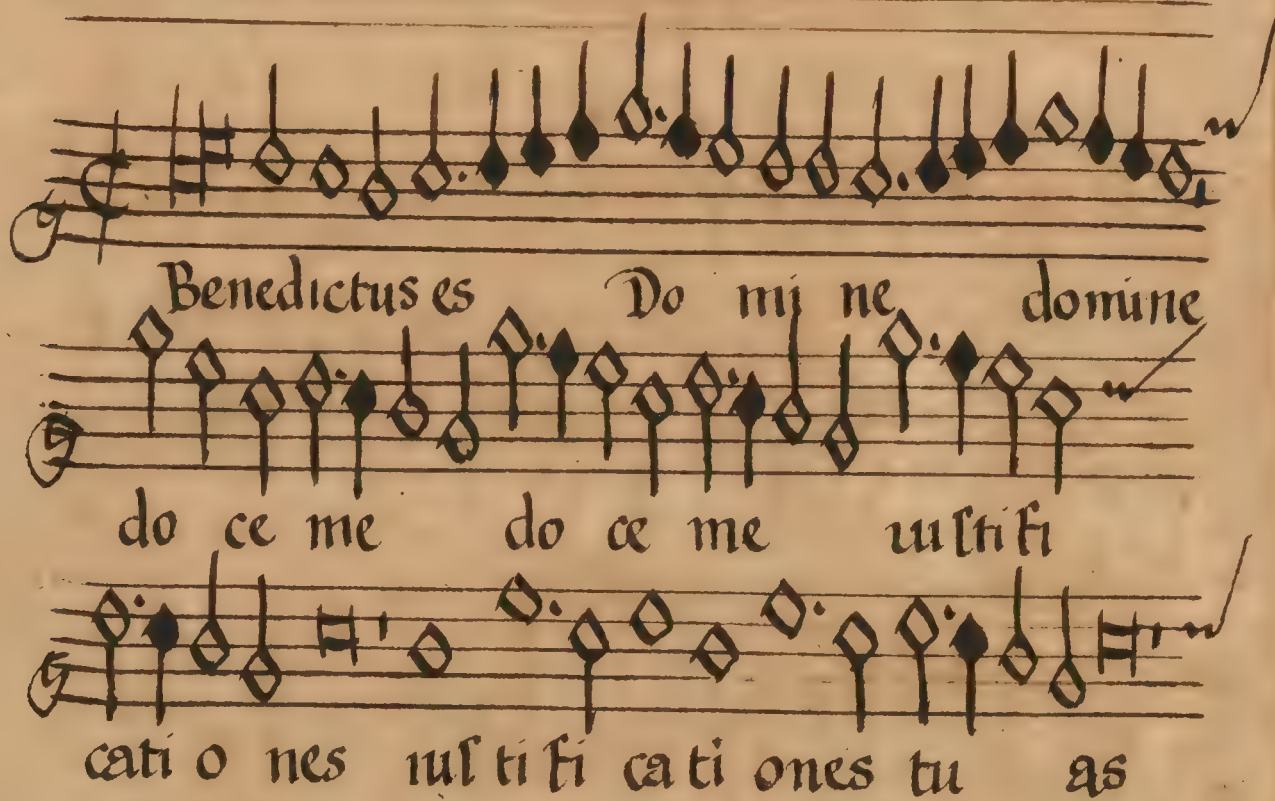 Benedictus es Do mi ne domine
do ce me do ce me iustifi
cati o nes iusti fi ca ti ones tu as